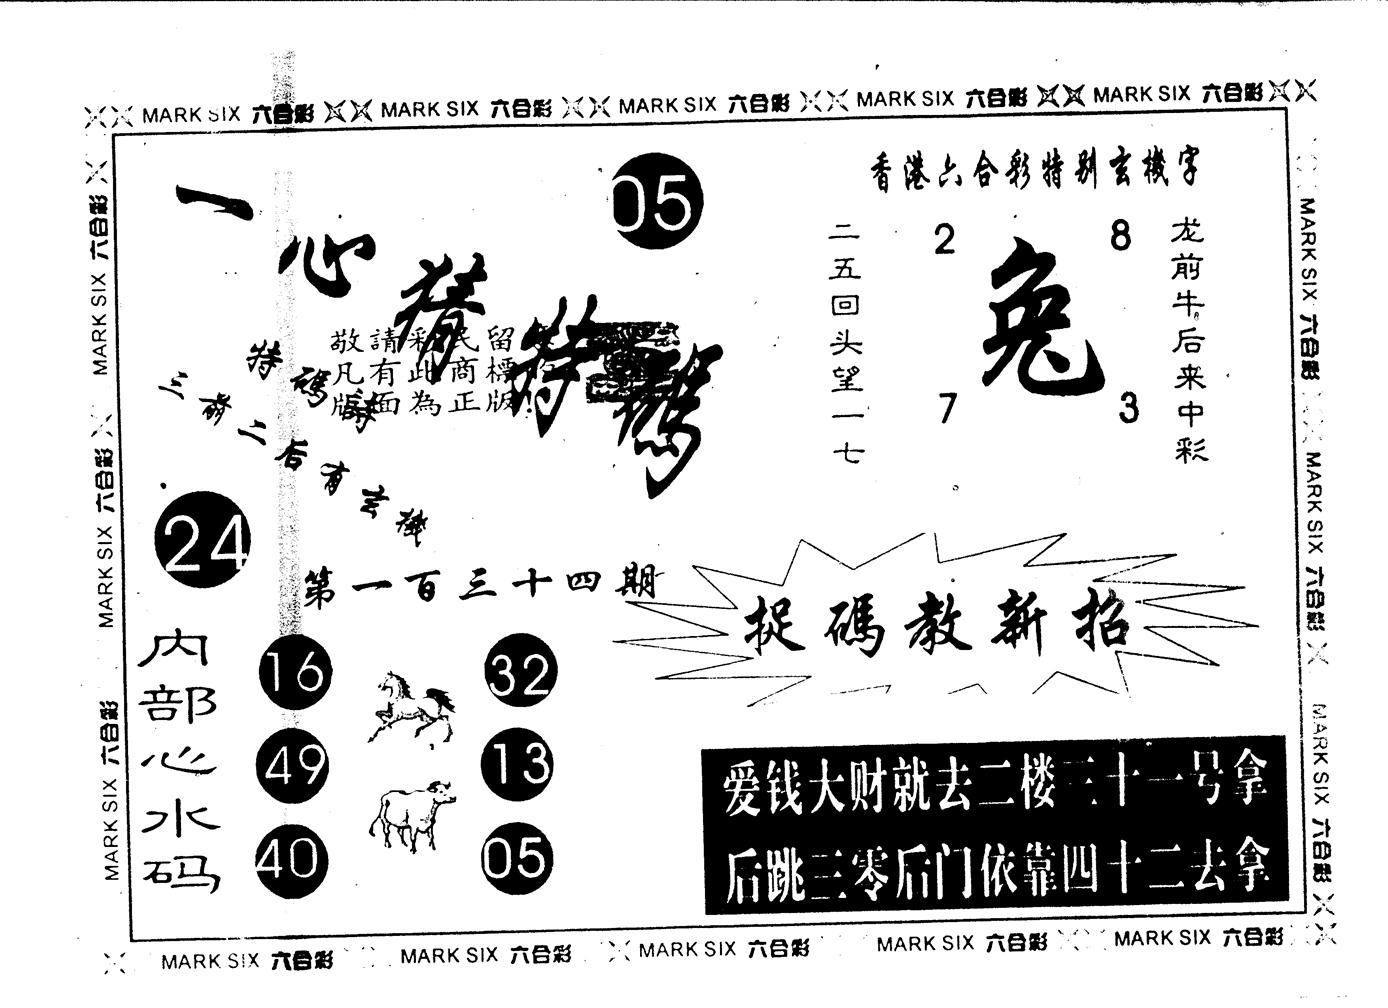 MARK SIX 六合彩 MARK SIX 六合彩 MARK SIX 六合彩 MARK SIX 六合彩 MARK SIX 六合彩
一心猜特碼
05
香港六合彩特别玄機字
二五回头望一七
2 8
兔
7 3
龙前牛后来中彩
敬請彩民留
凡有此商標
版面為正版!
特碼詩
三前二后有玄機
24
第一百三十四期
内部心水码
16 32
49 13
40 05
捉碼教新招
爱钱大财就去二楼三十一号拿
后跳三零后门依靠四十二去拿
MARK SIX 六合彩
MARK SIX 六合彩
MARK SIX 六合彩
MARK SIX 六合彩
MARK SIX 六合彩
MARK SIX 六合彩
MARK SIX 六合彩 MARK SIX 六合彩 MARK SIX 六合彩 MARK SIX 六合彩 MARK SIX 六合彩